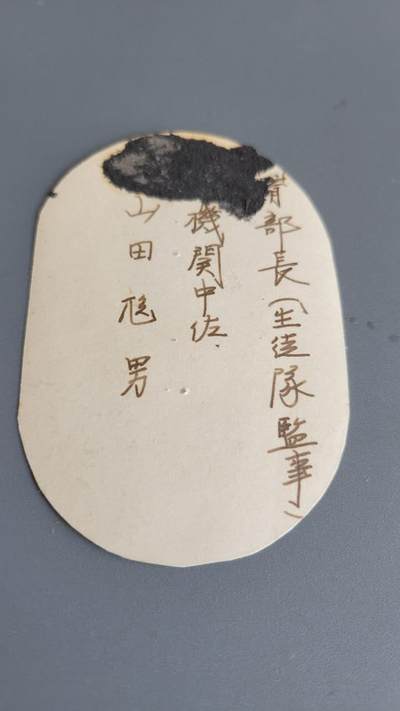 備部長(生徒隊監事)
機関中佐
山田男